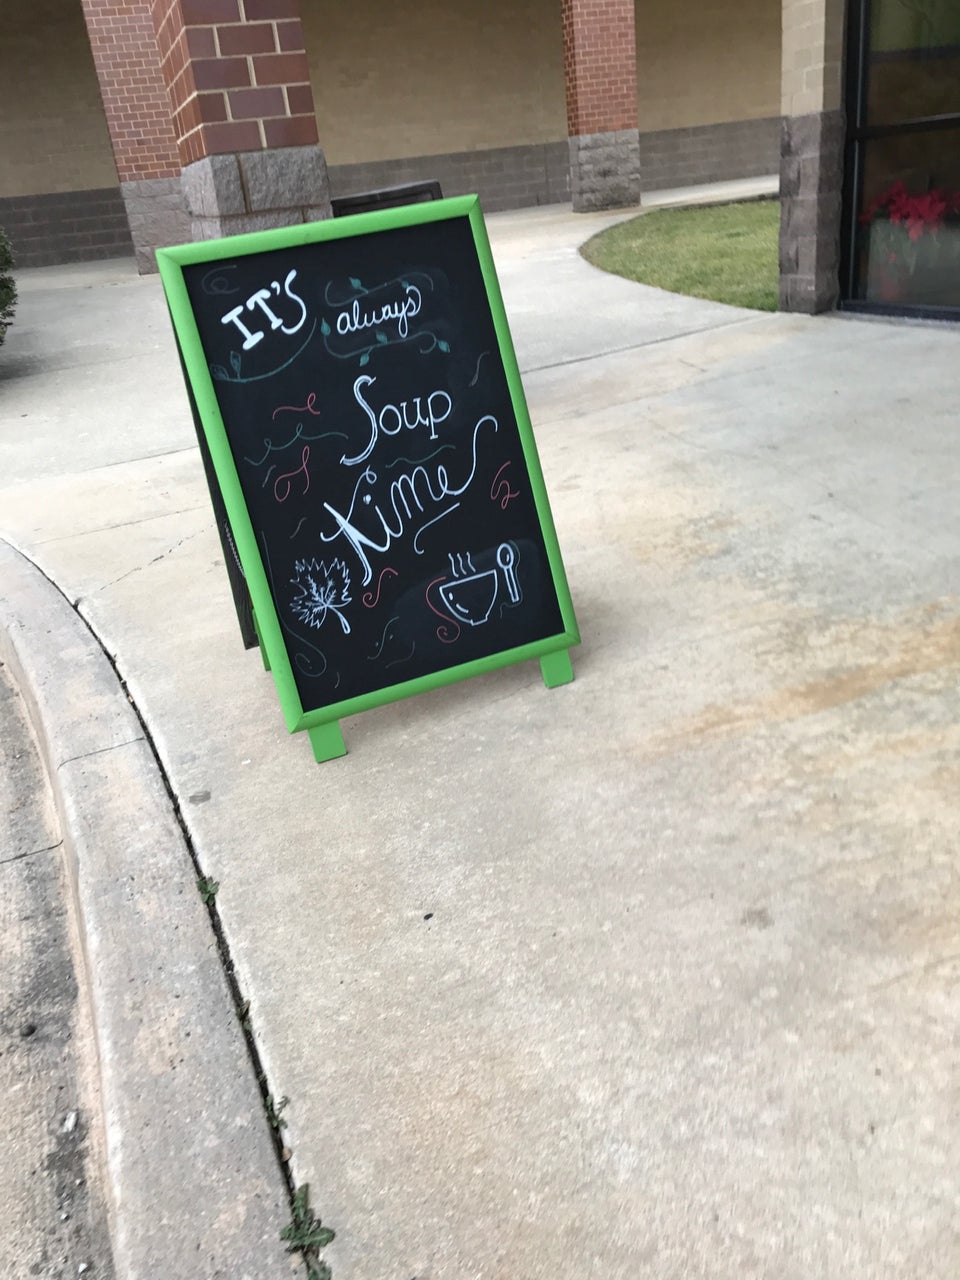 IT'S always
Soup
time